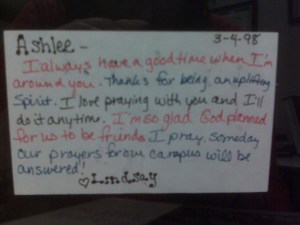 Ashlee - 3-4-98
I always have a good time when I'm
around you. Thanks for being an uplifting
spirit. I love praying with you and I'll
do it anytime. I'm so glad God planned
for us to be friends. I pray, someday
our prayers for our campus will be
answered!
♡Lindsay